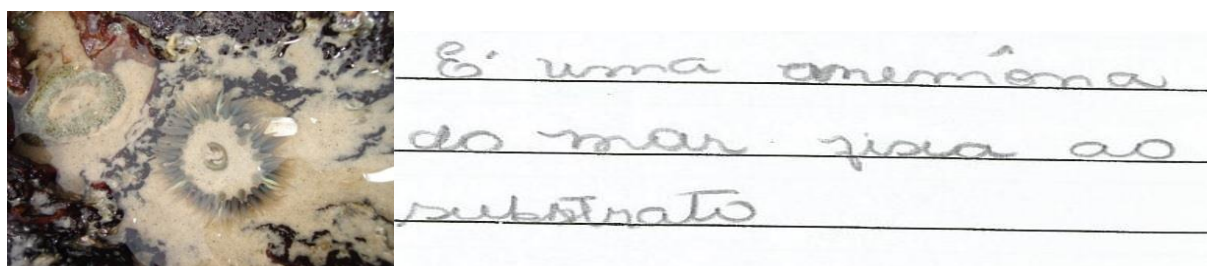 É uma anemôna
do mar fixa ao
substrato